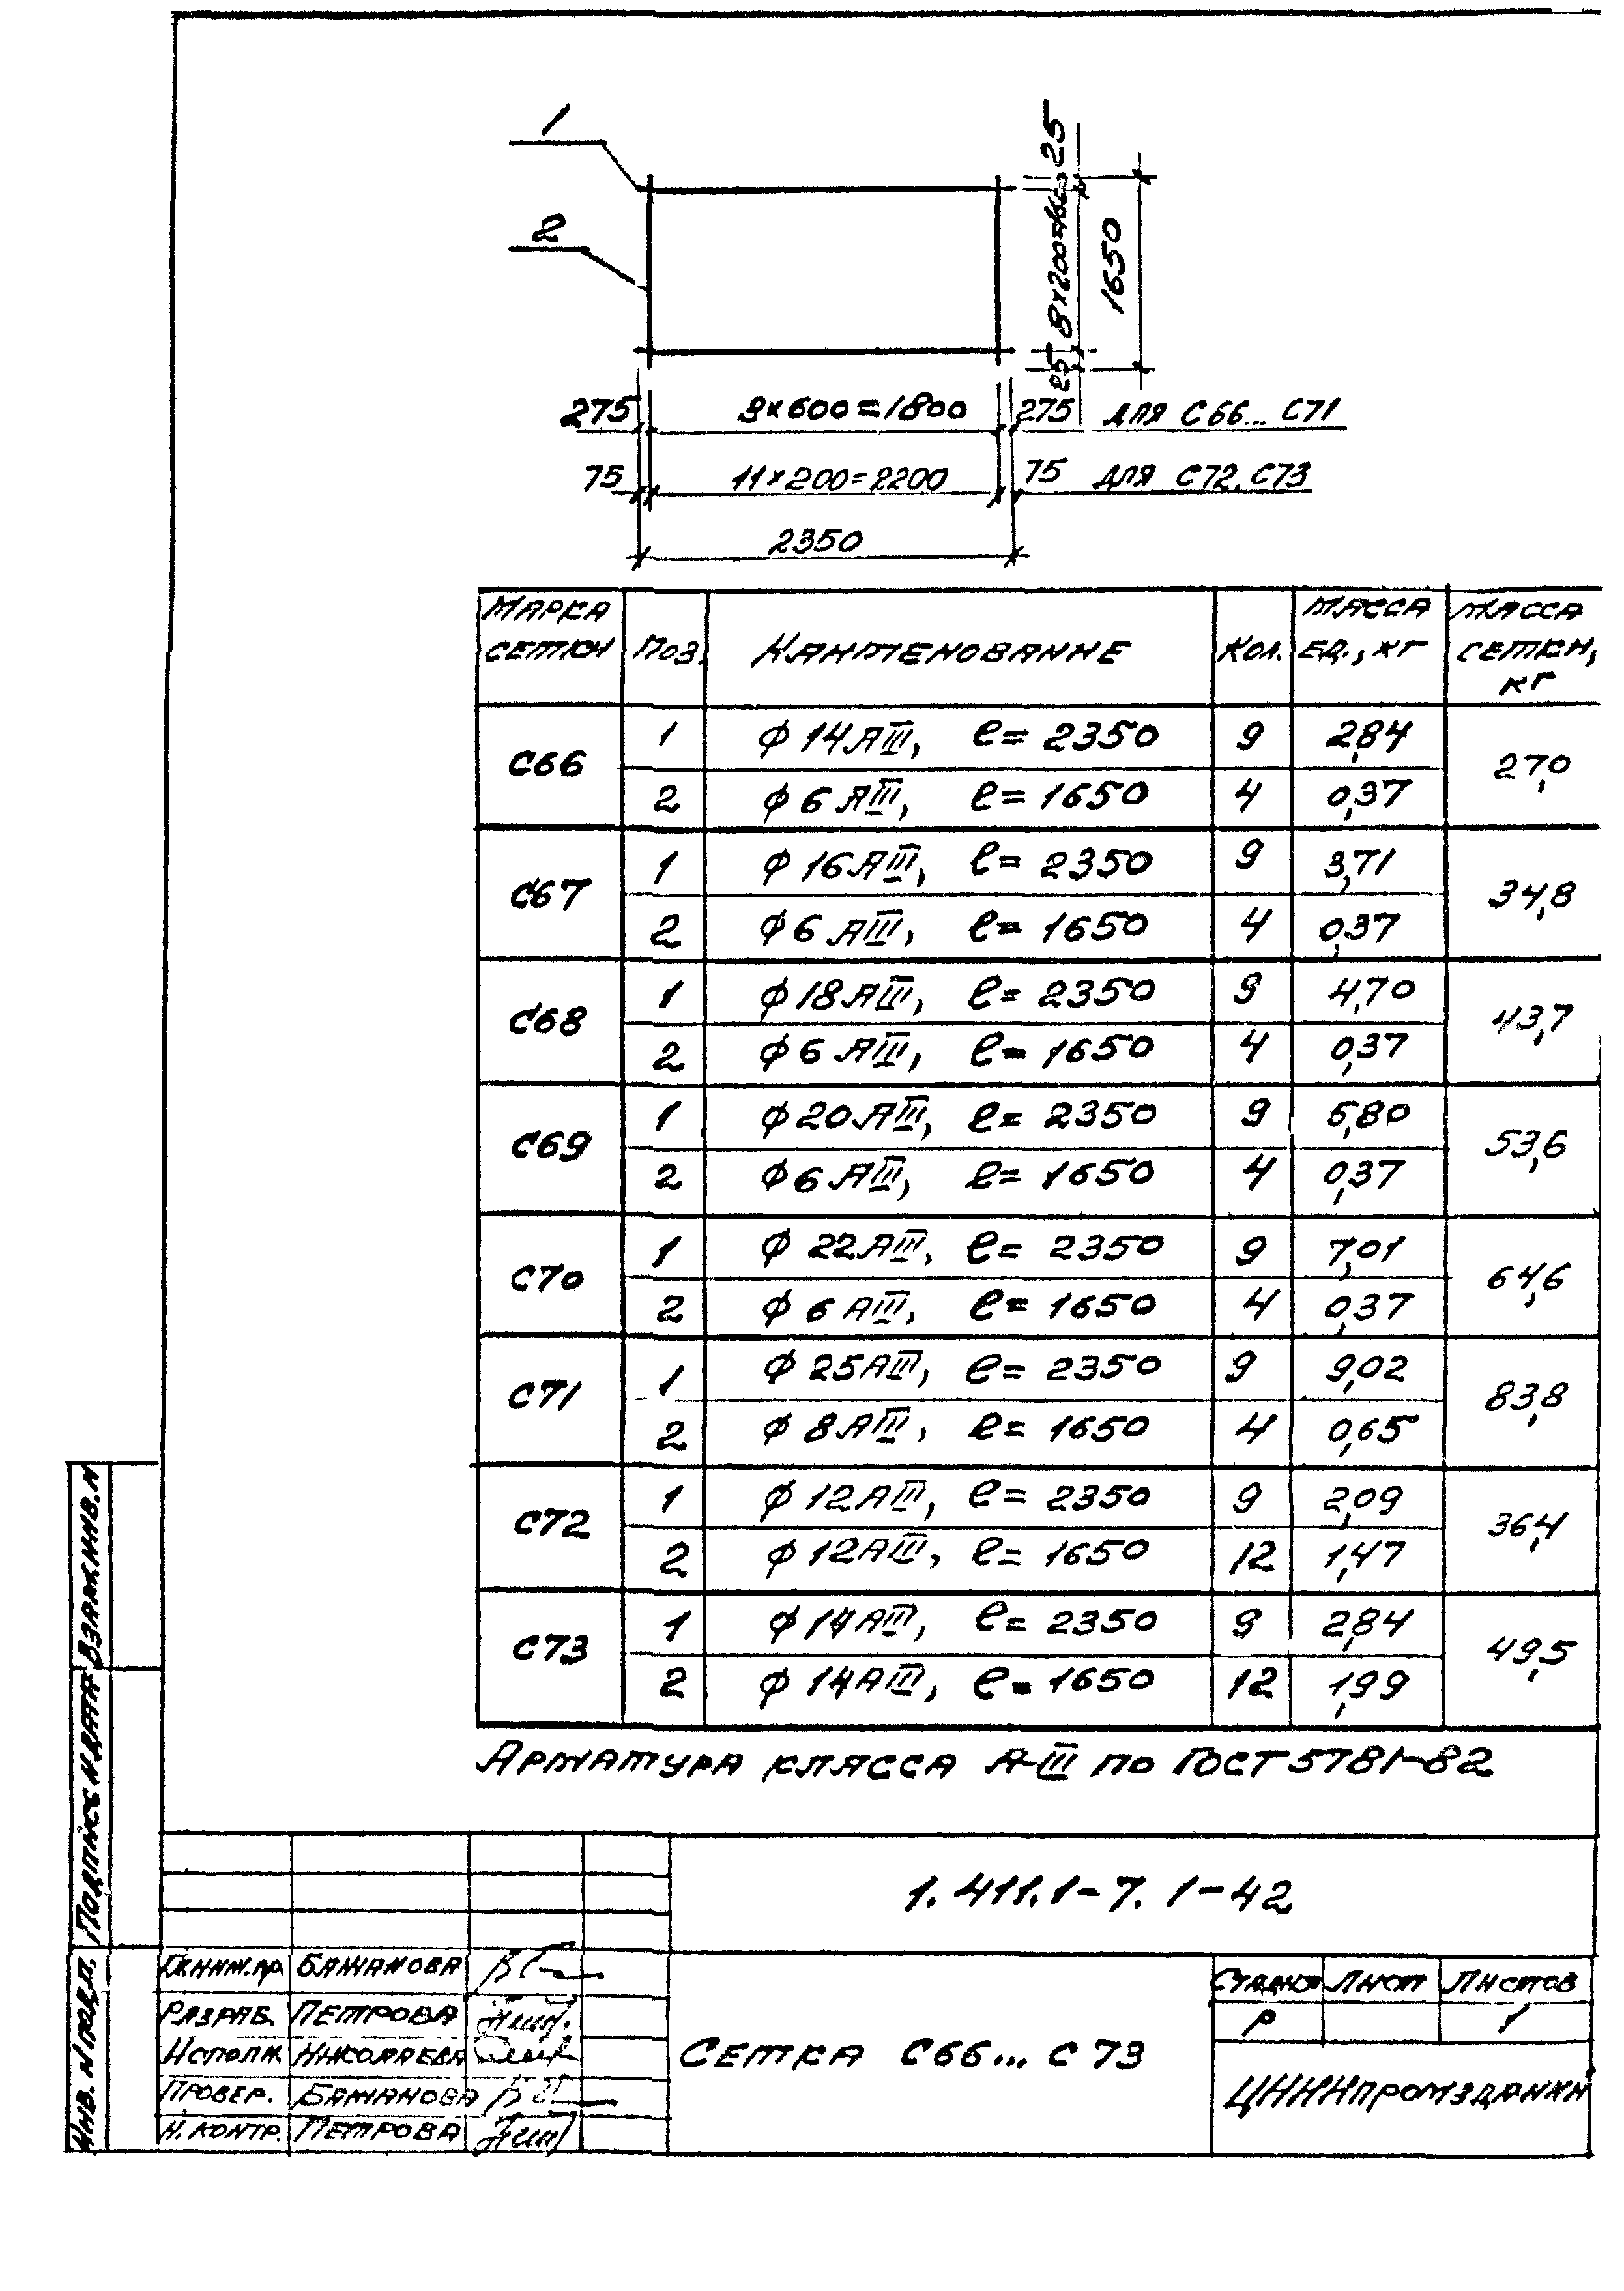 1
2
25
8×200=1600
1650
25
275 3×600=1800 275 для С66... С71
75 11×200=2200 75 для С72, С73
2350
Марка сетки Поз. Наименование Кол. Масса ед., кг Масса сетки, кг
С66 1 ϕ14АIII, ℓ=2350 9 2,84 27,0
2 ϕ6АIII, ℓ=1650 4 0,37
С67 1 ϕ16АIII, ℓ=2350 9 3,71 34,8
2 ϕ6АIII, ℓ=1650 4 0,37
С68 1 ϕ18АIII, ℓ=2350 9 4,70 43,7
2 ϕ6АIII, ℓ=1650 4 0,37
С69 1 ϕ20АIII, ℓ=2350 9 5,80 53,6
2 ϕ6АIII, ℓ=1650 4 0,37
С70 1 ϕ22АIII, ℓ=2350 9 7,01 64,6
2 ϕ6АIII, ℓ=1650 4 0,37
С71 1 ϕ25АIII, ℓ=2350 9 9,02 83,8
2 ϕ8АIII, ℓ=1650 4 0,65
С72 1 ϕ12АIII, ℓ=2350 9 2,09 36,4
2 ϕ12АIII, ℓ=1650 12 1,47
С73 1 ϕ14АIII, ℓ=2350 9 2,84 49,5
2 ϕ14АIII, ℓ=1650 12 1,99
Арматура класса А-III по ГОСТ 5781-82
Взам.инв.N
Подпись и дата
Инв. N подл.
1.411.1-7.1-42
Гл.инж.пр Бажанова
Разраб. Петрова
Исполн. Николаева
Провер. Бажанова
Н.контр. Петрова
Сетка С66... С73
Стадия Лист Листов
Р 1
ЦНИИпромзданий